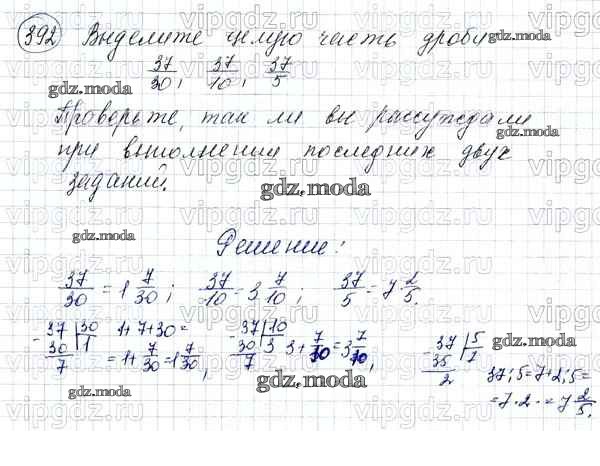 392 Выделите целую часть дроби
37/30, 37/10, 37/5
Проверьте, так ли вы рассуждали
при выполнении последних двух
заданий.
Решение:
37/30 = 1 7/30; 37/10 = 3 7/10; 37/5 = 7 2/5.
- 37 | 30 1+7÷30= - 37 | 10 - 37 | 5
30 | 1 = 1+ 7/30 = 1 7/30, 30 | 3 3+ 7/10 = 3 7/10, 35 | 7
7 7 2 37:5=7+2:5=
= 7 2/5.
gdz.moda
gdz.moda
gdz.moda
gdz.moda
gdz.moda
gdz.moda
gdz.moda
gdz.moda
vipgdz.ru